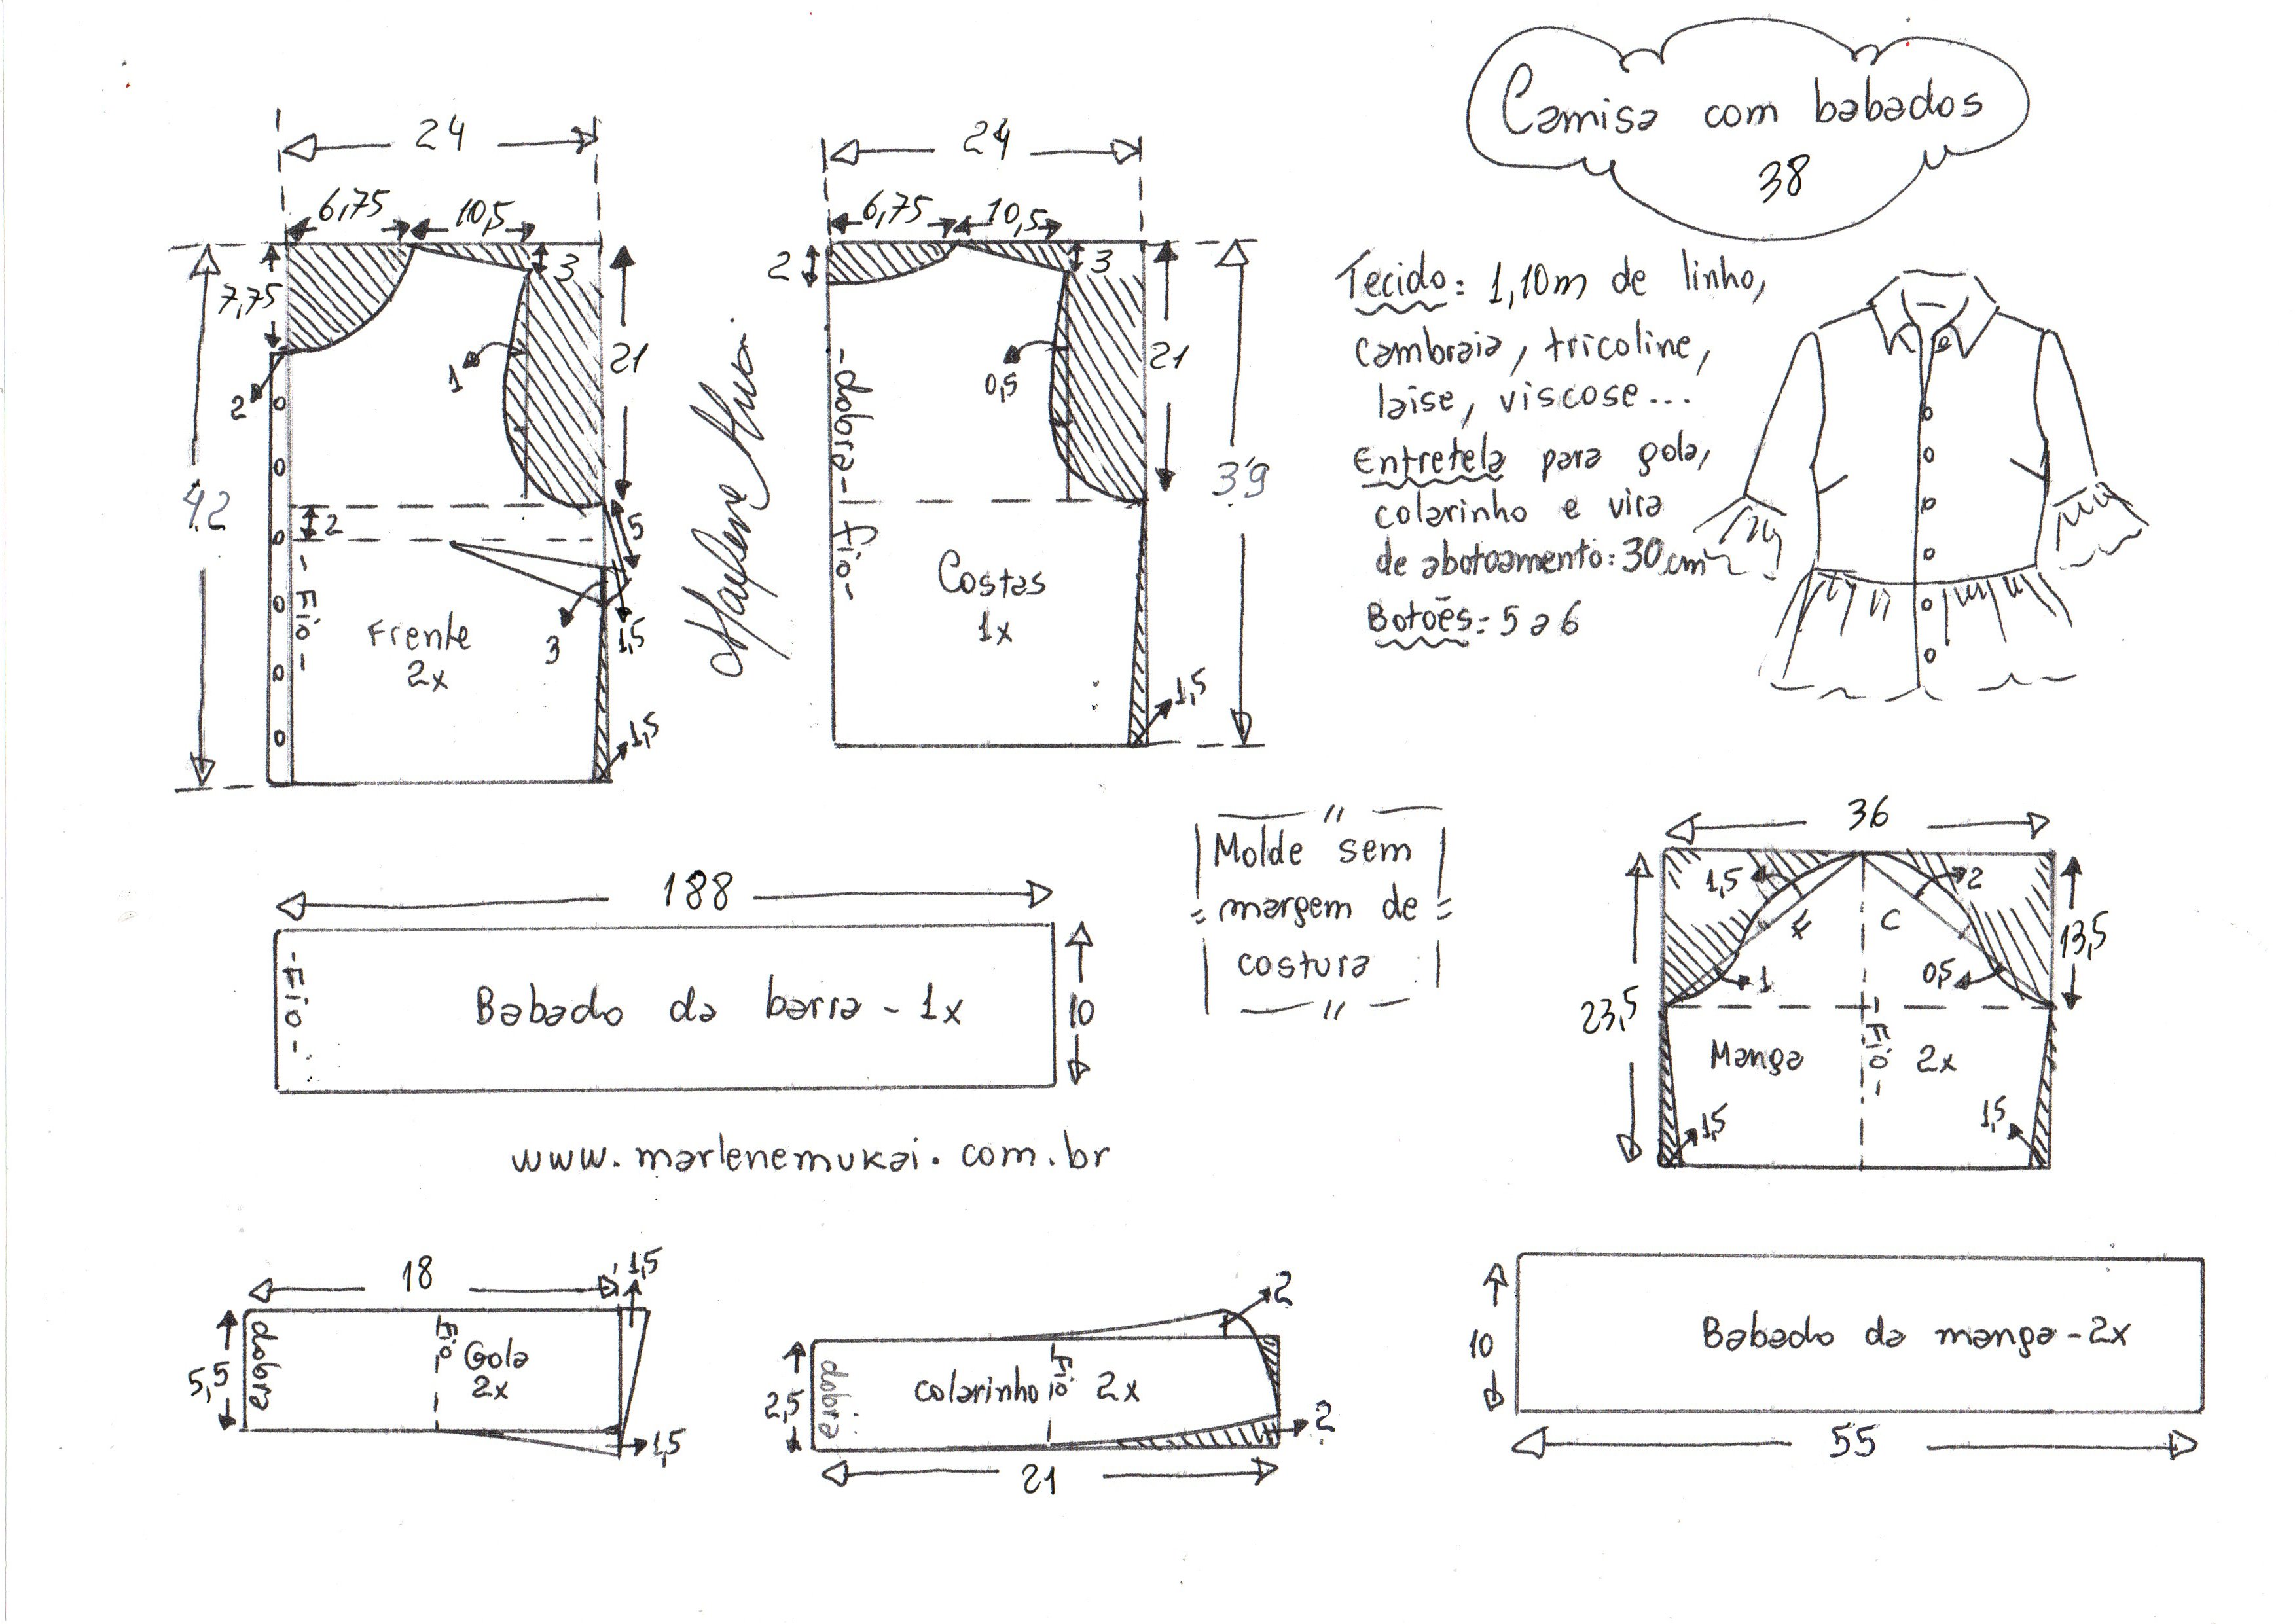 Camisa com babados
38
Tecido: 1,10m de linho,
cambraia, tricoline,
laise, viscose...
Entretela para gola,
colarinho e vira
de abotoamento: 30 cm
Botões: 5 a 6
24
6,75
10,5
7,75
3
21
1
2
42
2
5
-Fio-
Frente
2x
3
1,5
1,5
Marlene Mukai
24
6,75
10,5
2
3
-dobra-
-Fio-
0,5
21
39
Costas
1x
1,5
188
-Fio-
Babado da barra - 1x
10
Molde sem
margem de
costura
36
1,5
2
F
C
13,5
1
0,5
23,5
Manga
-Fio-
2x
1,5
1,5
www.marlenemukai.com.br
18
1,5
5,5
dobra
Fio
Gola
2x
1,5
2
2,5
dobra
colarinho
Fio
2x
2
21
10
Babado da manga - 2x
55